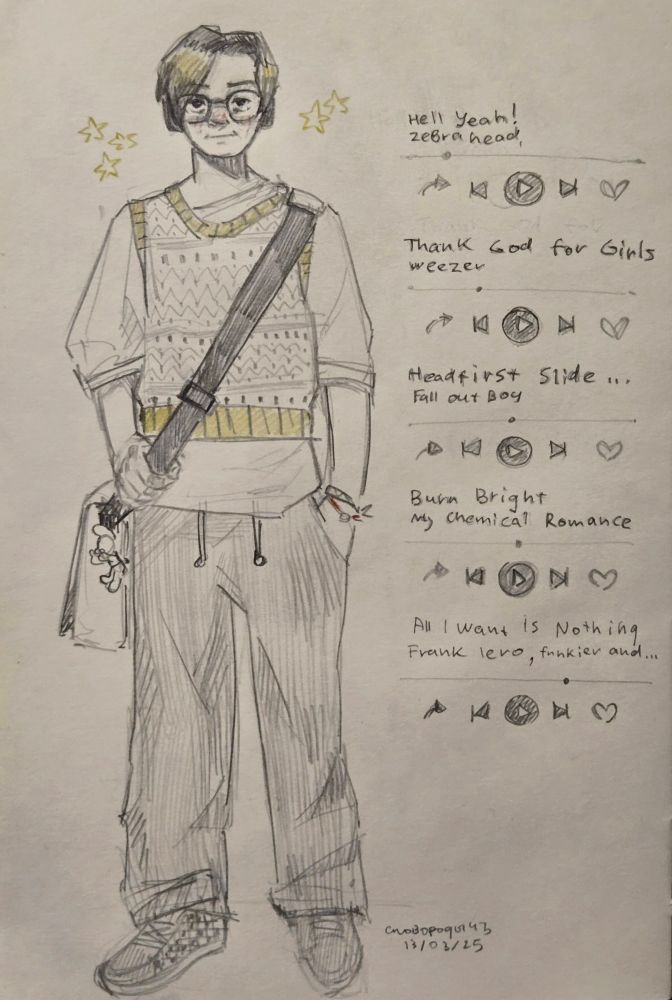 Hell Yeah!
zebrahead,
Thank God for Girls
weezer
Headfirst Slide ...
Fall out Boy
Burn Bright
My Chemical Romance
All I Want is Nothing
Frank Iero, fnnkier and...
13/03/25